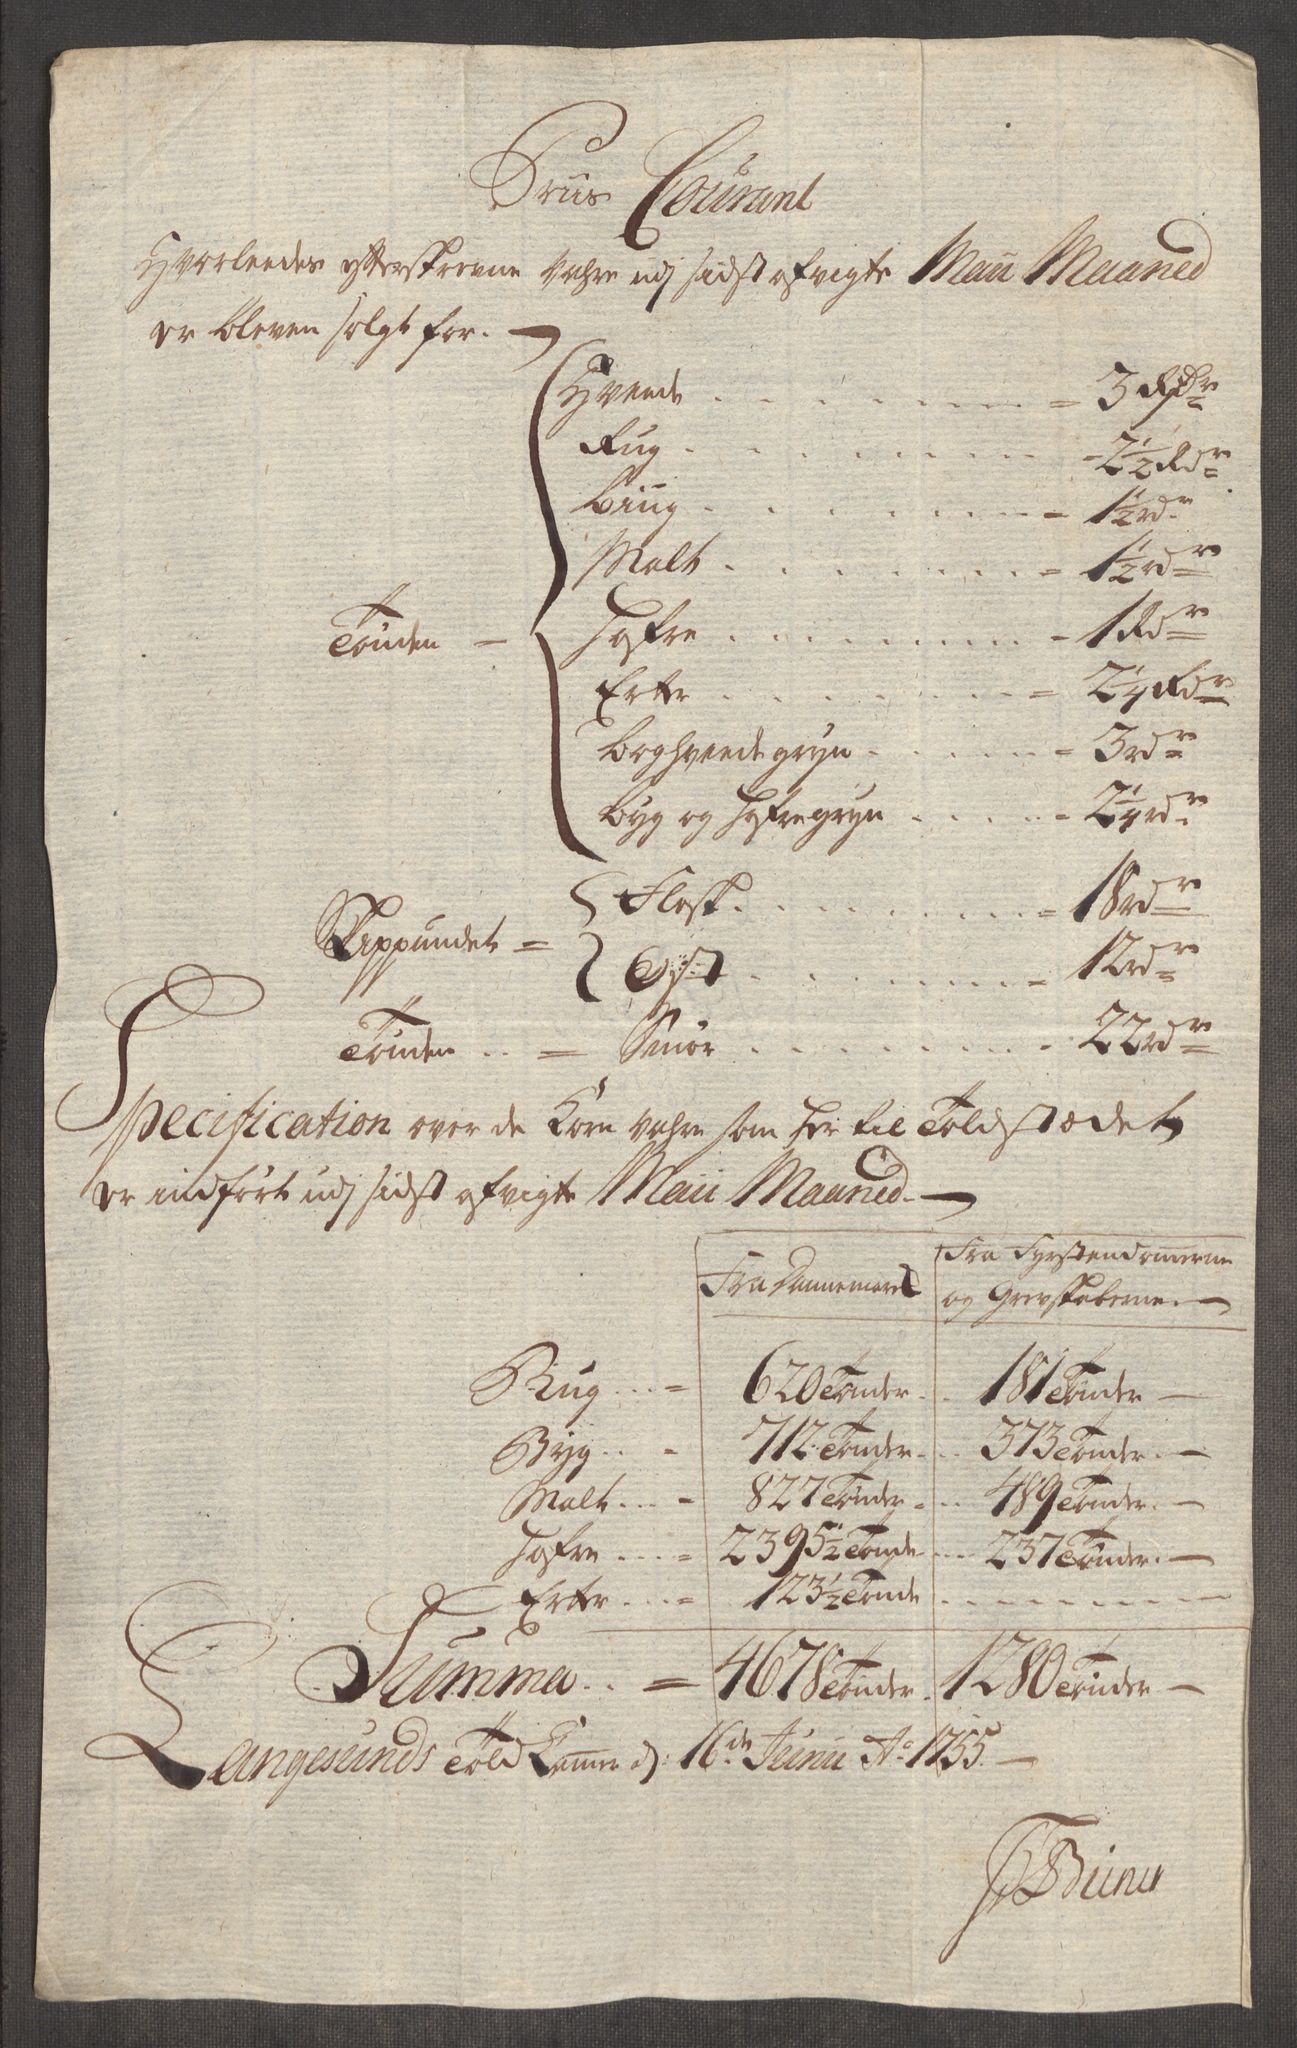 Priis Courant
Hvorleedes efterskrevne Vahre udj sidst afvigte Maii Maaned
er bleven solgt for.
Hveede - 3 Rdr
Rug - 2 1/2 Rdr
biug - 1 1/2 rdr
Malt - 1 1/2 rdr
Tönden - Hafre - 1 Rdr
Erter - 2 1/4 Rdr
boghveede gryn - 3 rdr
byg og Hafre gryn - 2 1/4 rdr
Skippundet = Flesk - 18 rdr
Ost - 12 rdr
Tönden = Smör - 22 rdr
Specification over de Korn Vahre som her til Toldstædet
er indfört udj sidst afvigte Maii Maaned.
Fra Dannemarck | Fra Fyrstendömerne
og Grevskaberne.
Rug = 620 Tönder | 181 Tönder
Byg - 712 Tönder | 373 Tönder
Malt - 827 Tönder | 489 Tönder
Hafre = 2395 1/2 Tönde | 237 Tönder
Erter = 123 1/2 Tönde
Summa = 4678 Tönder | 1280 Tönder
Langesunds Told Kamer d: 16de Junii Ao 1755.